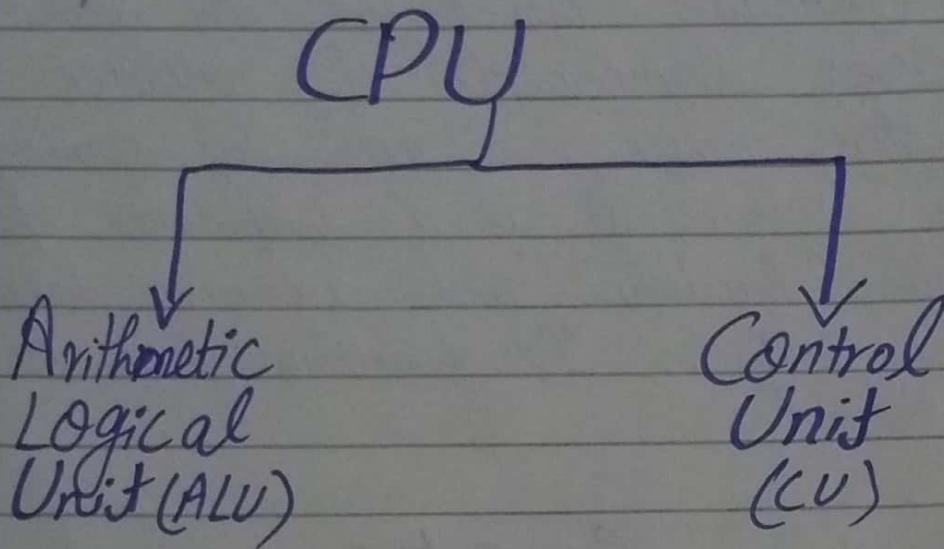 CPU
Arithmetic
Logical
Unit (ALU)
Control
Unit
(CU)